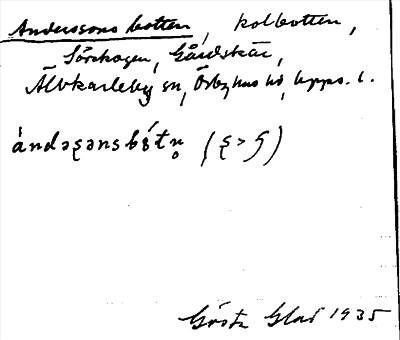 Anderssons botten, kolbotten,
Sörskogen, Gårdskär,
Älvkarleby sn, Örbyhus hd, Upps. l.
ándəʂənsbótn̥ (ʂ > ʂ)
Gösta Glad 1935